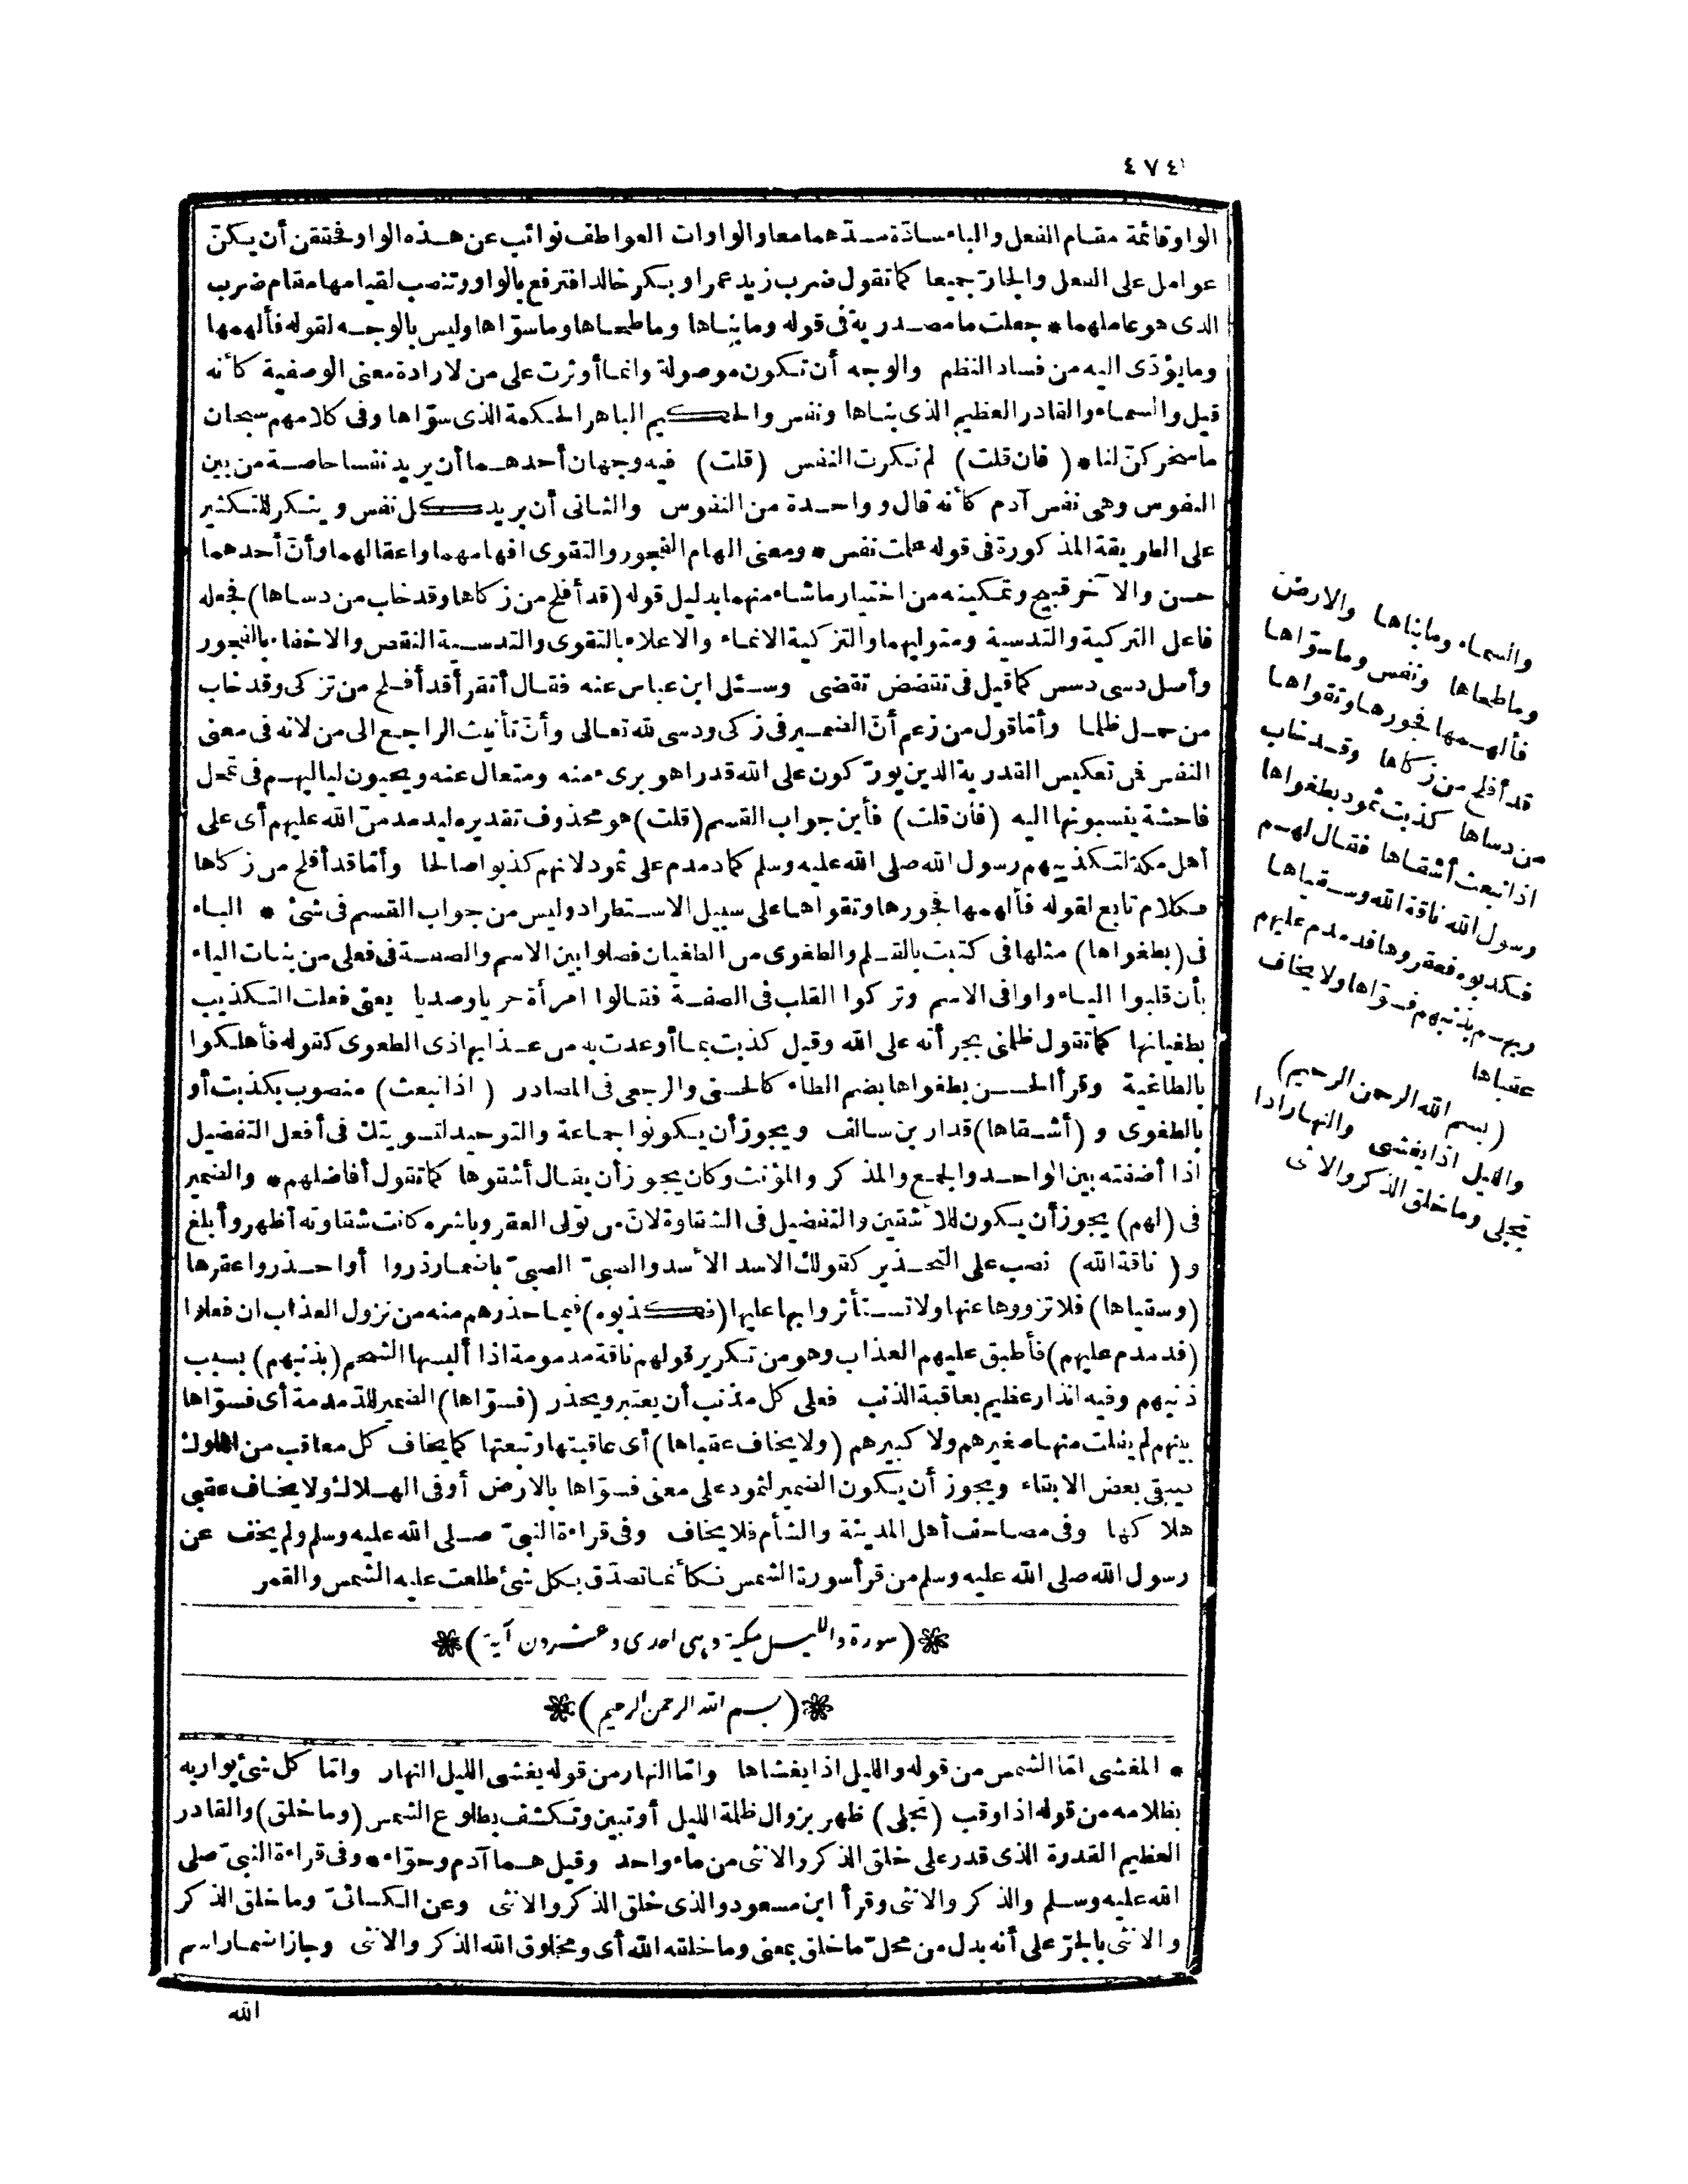 ٤٧٤
الواو قائمة مقام الفعل والباء سادّة مسدّهما معا والواوات العواطف نوائب عن هذه الواو فحققن أن يكنّ
عوامل على الفعل والجارّ جميعا كما تقول ضرب زيد عمرا وبكر خالدا فترفع بالواو وتنصب لقيامها مقام ضرب
الذى هو عاملهما * جعلت ما مصدرية فى قوله وما بناها وما طحاها وما سوّاها وليس بالوجه لقوله فألهمها
وما يؤدّى اليه من فساد النظم والوجه أن تكون موصولة وانما أوثرت على من لارادة معنى الوصفية كأنه
قيل والسماء والقادر العظيم الذى بناها ونفس والحكيم الباهر الحكمة الذى سوّاها وفى كلامهم سبحان
ما سخركنّ لنا * (فان قلت) لم نكرت النفس (قلت) فيه وجهان أحدهما أن يريد نفسا خاصة من بين
النفوس وهى نفس آدم كأنه قال وواحدة من النفوس والثانى أن يريد كل نفس وينكر للتكثير
على الطريقة المذكورة فى قوله علمت نفس * ومعنى الهام الفجور والتقوى افهامهما واعقالهما وأنّ أحدهما
حسن والآخر قبيح وتمكينه من اختيار ما شاء منهما بدليل قوله (قد أفلح من زكاها وقد خاب من دساها) فجعله
فاعل التزكية والتدسية ومتوليهما والتزكية الانماء والاعلاء بالتقوى والتدسية النقص والاخفاء بالفجور
وأصل دسى دسس كما قيل فى تقضض تقضى وسئل ابن عباس عنه فقال أتقرأ قد أفلح من تزكى وقد خاب
من حمل ظلما وأمّا قول من زعم أنّ الضمير فى زكى ودسى لله تعالى وأنّ تأنيث الراجع الى من لانه فى معنى
النفس فمن تعكيس القدرية الذين يورّكون على الله قدرا هو برىء منه ومتعال عنه ويحيون لياليهم فى تمحل
فاحشة ينسبونها اليه (فان قلت) فأين جواب القسم (قلت) هو محذوف تقديره ليدمدمنّ الله عليهم أى على
أهل مكة لتكذيبهم رسول الله صلى الله عليه وسلم كما دمدم على ثمود لانهم كذبوا صالحا وأمّا قد أفلح من زكاها
فكلام تابع لقوله فألهمها فجورها وتقواها على سبيل الاستطراد وليس من جواب القسم فى شئ * الباء
فى (بطغواها) مثلها فى كتبت بالقلم والطغوى من الطغيان فصلوا بين الاسم والصفة فى فعلى من بنات الياء
بأن قلبوا الياء واوا فى الاسم وتركوا القلب فى الصفة فقالوا امرأة خزيا وصديا يعنى فعلت التكذيب
بطغيانها كما تقول ظلمنى بجرأته على الله وقيل كذبت بما أوعدت به من عذابها ذى الطغوى كقوله فأهلكوا
بالطاغية وقرأ الحسن بطغواها بضم الطاء كالحسنى والرجعى فى المصادر (اذ انبعث) منصوب بكذبت أو
بالطغوى و(أشقاها) قدار بن سالف ويجوز أن يكونوا جماعة والتوحيد لتسويتك فى أفعل التفضيل
اذا أضفته بين الواحد والجمع والمذكر والمؤنث وكان يجوز أن يقال أشقوها كما تقول أفاضلهم * والضمير
فى (لهم) يجوز أن يكون للأشقين والتفضيل فى الشقاوة لانّ من تولى العقر وباشره كانت شقاوته أظهر وأبلغ
و(ناقة الله) نصب على التحذير كقولك الاسد الأسد والصبىّ الصبىّ باضمار ذروا أو احذروا عقرها
(وسقياها) فلا تزووها عنها ولا تستأثروا بها عليها (فكذبوه) فيما حذرهم منه من نزول العذاب ان فعلوا
(فدمدم عليهم) فأطبق عليهم العذاب وهو من تكرير قولهم ناقة مدمومة اذا ألبسها الشحم (بذنبهم) بسبب
ذنبهم وفيه انذار عظيم بعاقبة الذنب فعلى كل مذنب أن يعتبر ويحذر (فسوّاها) الضمير للدمدمة أى فسوّاها
بينهم لم يفلت منها صغيرهم ولا كبيرهم (ولا يخاف عقباها) أى عاقبتها وتبعتها كما يخاف كل معاقب من الملوك
فيبقى بعض الابقاء ويجوز أن يكون الضمير لثمود على معنى فسوّاها بالارض أو فى الهلاك ولا يخاف عقبى
هلاكها وفى مصاحف أهل المدينة والشأم فلا يخاف وفى قراءة النبىّ صلى الله عليه وسلم ولم يخف عن
رسول الله صلى الله عليه وسلم من قرأ سورة الشمس فكأنما تصدّق بكل شئ طلعت عليه الشمس والقمر
*(سورة والليل مكية وهى احدى وعشرون آية)*
*(بسم الله الرحمن الرحيم)*
* المغشى امّا الشمس من قوله والليل اذا يغشاها وامّا النهار من قوله يغشى الليل النهار وامّا كل شئ يواريه
بظلامه من قوله اذا وقب (تجلى) ظهر بزوال ظلمة الليل أو تبين وتكشف بطلوع الشمس (وما خلق) والقادر
العظيم القدرة الذى قدر على خلق الذكر والانثى من ماء واحد وقيل هما آدم وحوّاء * وفى قراءة النبىّ صلى
الله عليه وسلم والذكر والانثى وقرأ ابن مسعود والذى خلق الذكر والانثى وعن الكسائىّ وما خلق الذكر
والانثى بالجرّ على أنه بدل من محلّ ما خلق بمعنى وما خلقه الله أى ومخلوق الله الذكر والانثى وجاز اضمار اسم
الله
والسماء وما بناها والارض
وما طحاها ونفس وما سوّاها
فألهمها فجورها وتقواها
قد أفلح من زكاها وقد خاب
من دساها كذبت ثمود بطغواها
اذ انبعث أشقاها فقال لهم
رسول الله ناقة الله وسقياها
فكذبوه فعقروها فدمدم عليهم
ربهم بذنبهم فسوّاها ولا يخاف
عقباها
(بسم الله الرحمن الرحيم)
والليل اذا يغشى والنهار اذا
تجلى وما خلق الذكر والانثى